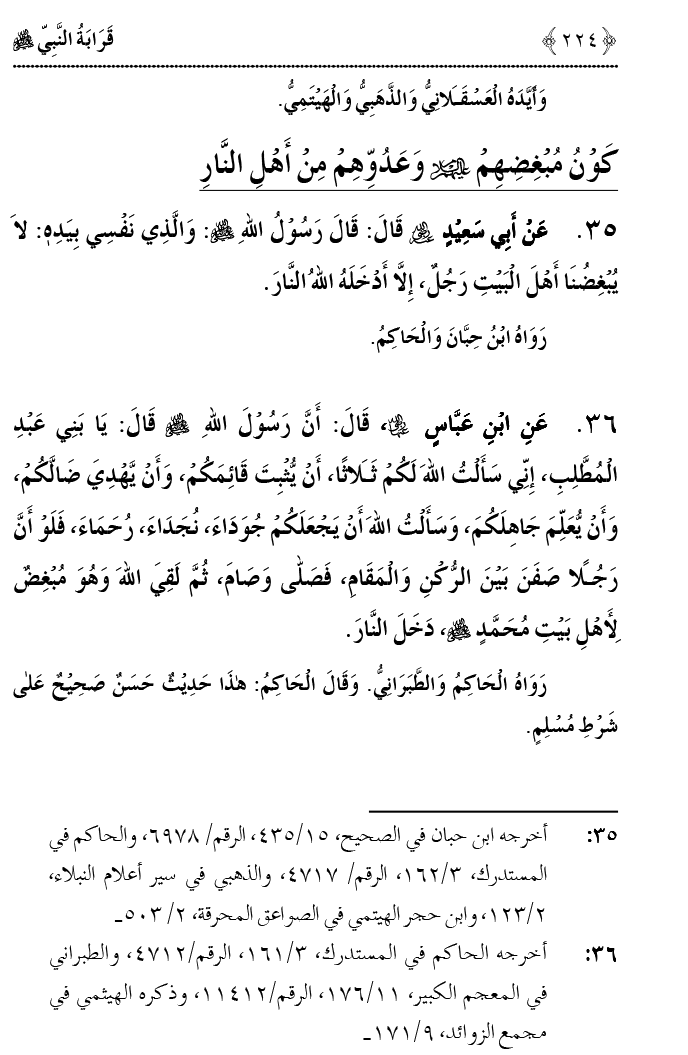 ﴿٢٢٤﴾ قَرَابَةُ النَّبِيِّ ﷺ
وَأَيَّدَهُ الْعَسْقَلَانِيُّ وَالذَّهَبِيُّ وَالْهَيْتَمِيُّ.
كَوْنُ مُبْغِضِهِمْ عليهم السلام وَعَدُوِّهِمْ مِنْ أَهْلِ النَّارِ
٣٥. عَنْ أَبِي سَعِيْدٍ رضي الله عنه قَالَ: قَالَ رَسُوْلُ اللهِ ﷺ: وَالَّذِي نَفْسِي بِيَدِهِ: لَا
يُبْغِضُنَا أَهْلَ الْبَيْتِ رَجُلٌ، إِلَّا أَدْخَلَهُ اللهُ النَّارَ.
رَوَاهُ ابْنُ حِبَّانَ وَالْحَاكِمُ.
٣٦. عَنِ ابْنِ عَبَّاسٍ رضي الله عنهما، قَالَ: أَنَّ رَسُوْلَ اللهِ ﷺ قَالَ: يَا بَنِي عَبْدِ
الْمُطَّلِبِ، إِنِّي سَأَلْتُ اللهَ لَكُمْ ثَلَاثًا، أَنْ يُثْبِتَ قَائِمَكُمْ، وَأَنْ يَّهْدِيَ ضَالَّكُمْ،
وَأَنْ يُّعَلِّمَ جَاهِلَكُمْ، وَسَأَلْتُ اللهَ أَنْ يَجْعَلَكُمْ جُوَدَاءَ، نُجَدَاءَ، رُحَمَاءَ، فَلَوْ أَنَّ
رَجُلًا صَفَنَ بَيْنَ الرُّكْنِ وَالْمَقَامِ، فَصَلَّى وَصَامَ، ثُمَّ لَقِيَ اللهَ وَهُوَ مُبْغِضٌ
لِأَهْلِ بَيْتِ مُحَمَّدٍ ﷺ، دَخَلَ النَّارَ.
رَوَاهُ الْحَاكِمُ وَالطَّبَرَانِيُّ. وَقَالَ الْحَاكِمُ: هٰذَا حَدِيْثٌ حَسَنٌ صَحِيْحٌ عَلٰى
شَرْطِ مُسْلِمٍ.
٣٥: أخرجه ابن حبان في الصحيح، ١٥/٤٣٥، الرقم/ ٦٩٧٨، والحاكم في
المستدرك، ٣/١٦٢، الرقم/ ٤٧١٧، والذهبي في سير أعلام النبلاء،
٢/١٢٣، وابن حجر الهيتمي في الصواعق المحرقة، ٢/ ٥٠٣ـ
٣٦: أخرجه الحاكم في المستدرك، ٣/١٦١، الرقم/٤٧١٢، والطبراني
في المعجم الكبير، ١١/١٧٦، الرقم/١١٤١٢، وذكره الهيثمي في
مجمع الزوائد، ٩/١٧١ـ